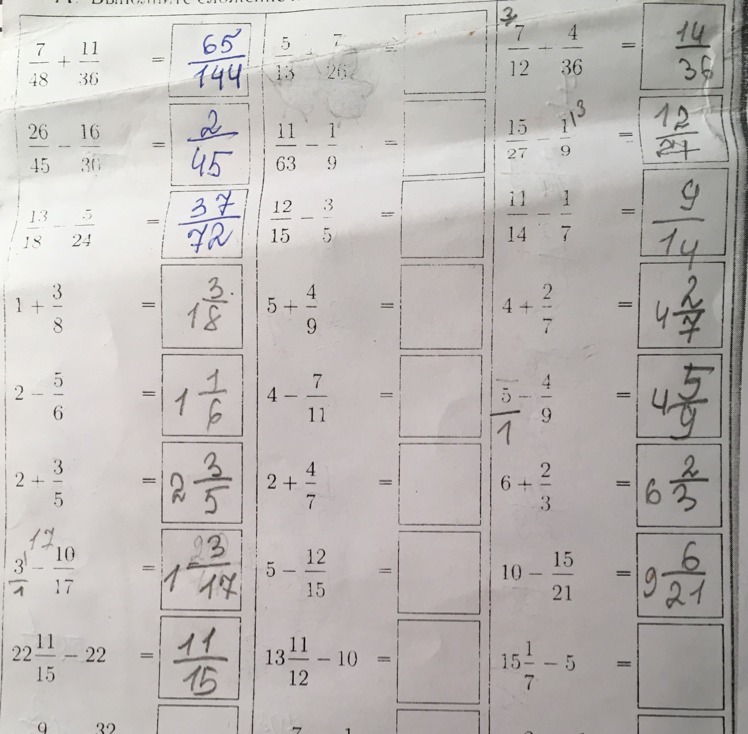 7/48 + 11/36 = 65/144 5/13 - 7/26 = 7/12 + 4/36 = 14/36
26/45 - 16/30 = 2/45 11/63 - 1/9 = 15/27 - 1/9 = 12/27
13/18 - 5/24 = 37/72 12/15 - 3/5 = 11/14 - 1/7 = 9/14
1 + 3/8 = 1 3/8 5 + 4/9 = 4 + 2/7 = 4 2/7
2 - 5/6 = 1 1/6 4 - 7/11 = 5/1 - 4/9 = 4 5/9
2 + 3/5 = 2 3/5 2 + 4/7 = 6 + 2/3 = 6 2/3
3/1 - 10/17 = 1 3/17 5 - 12/15 = 10 - 15/21 = 9 6/21
22 11/15 - 22 = 11/15 13 11/12 - 10 = 15 1/7 - 5 =
9 32 7 1